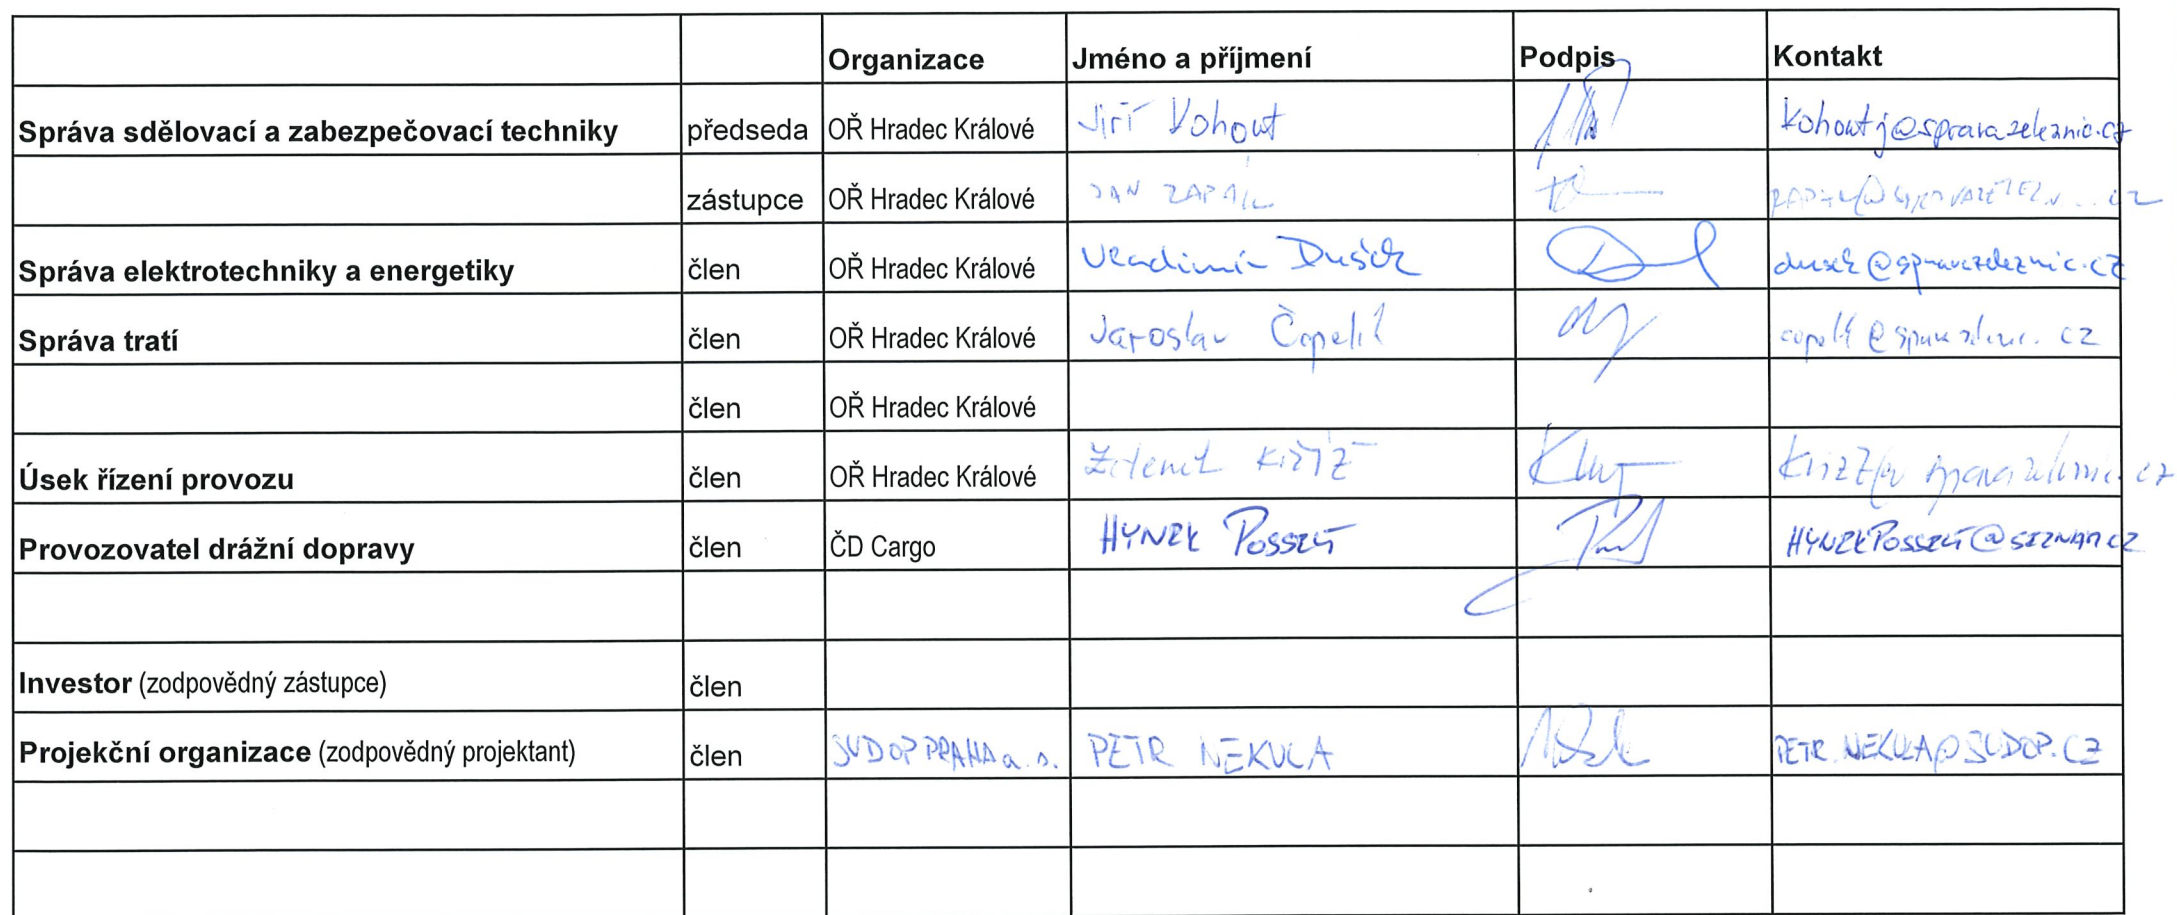 Organizace Jméno a příjmení Podpis Kontakt
Správa sdělovací a zabezpečovací techniky předseda OŘ Hradec Králové Jiří Kohout kohoutj@spravazeleznic.cz
zástupce OŘ Hradec Králové JAN
Správa elektrotechniky a energetiky člen OŘ Hradec Králové Vladimír Dušek dusek@spravazeleznic.cz
Správa tratí člen OŘ Hradec Králové Jaroslav
člen OŘ Hradec Králové
Úsek řízení provozu člen OŘ Hradec Králové Zdeněk KŘÍŽ
Provozovatel drážní dopravy člen ČD Cargo HYNEK POSSELT HYNEKPOSSELT@SEZNAM.CZ
Investor (zodpovědný zástupce) člen
Projekční organizace (zodpovědný projektant) člen SUDOP PRAHA a.s. PETR NEKULA PETR.NEKULA@SUDOP.CZ